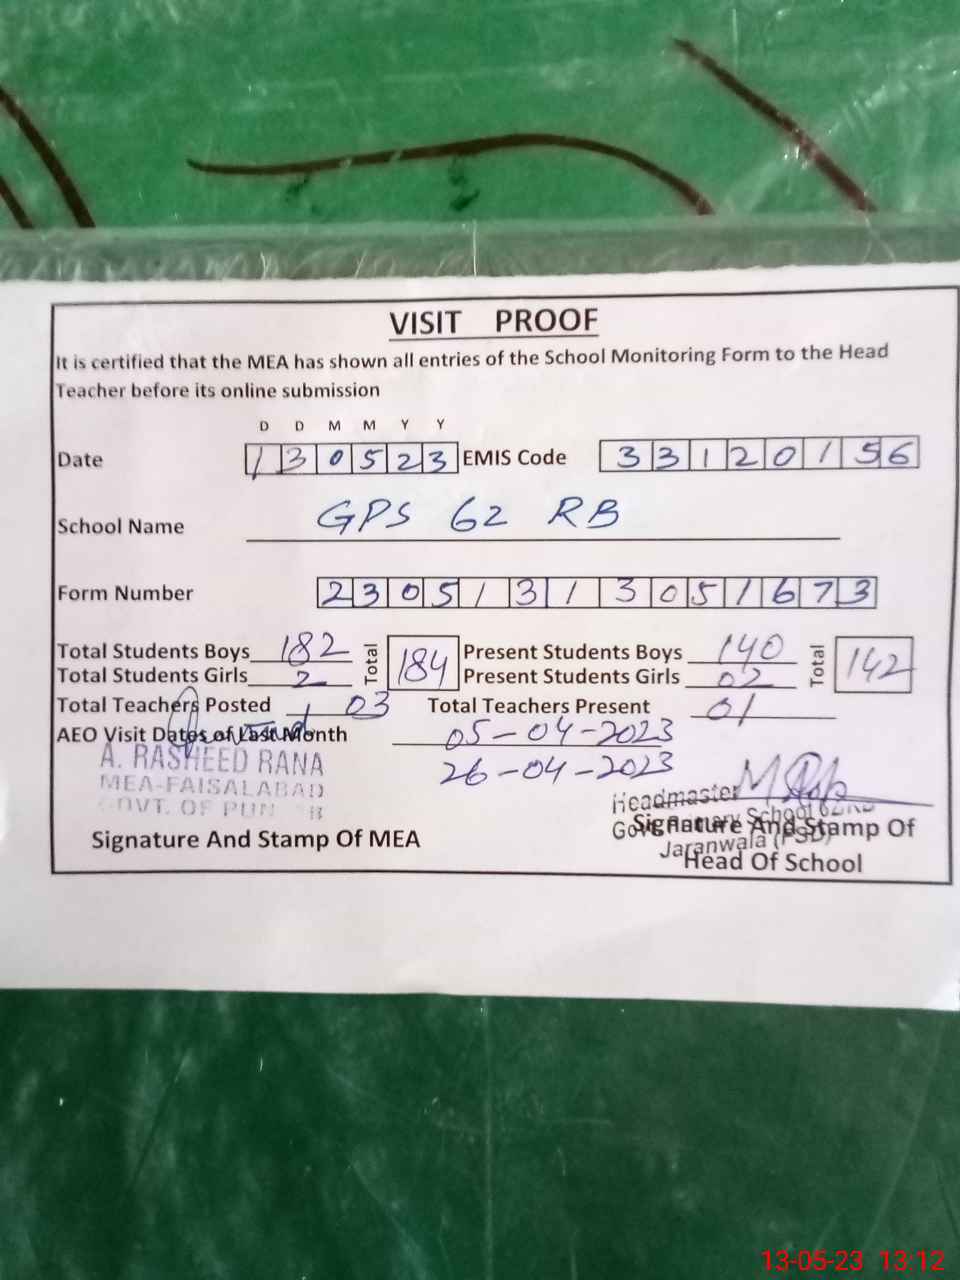 VISIT PROOF
It is certified that the MEA has shown all entries of the School Monitoring Form to the Head
Teacher before its online submission
D D M M Y Y
Date 130523 EMIS Code 33120156
School Name GPS 62 RB
Form Number 23051313051673
Total Students Boys 182 Total 184 Present Students Boys 140 Total 142
Total Students Girls 2 Present Students Girls 02
Total Teachers Posted 03 Total Teachers Present 01
AEO Visit Dates of Last Month 05-04-2023
26-04-2023
A. RASHEED RANA
MEA-FAISALABAD
GOVT. OF
Signature And Stamp Of MEA
Headmaster
Govt Primary School 62RB
Jaranwala (FSD)
Signature And Stamp Of
Head Of School
13-05-23 13:12